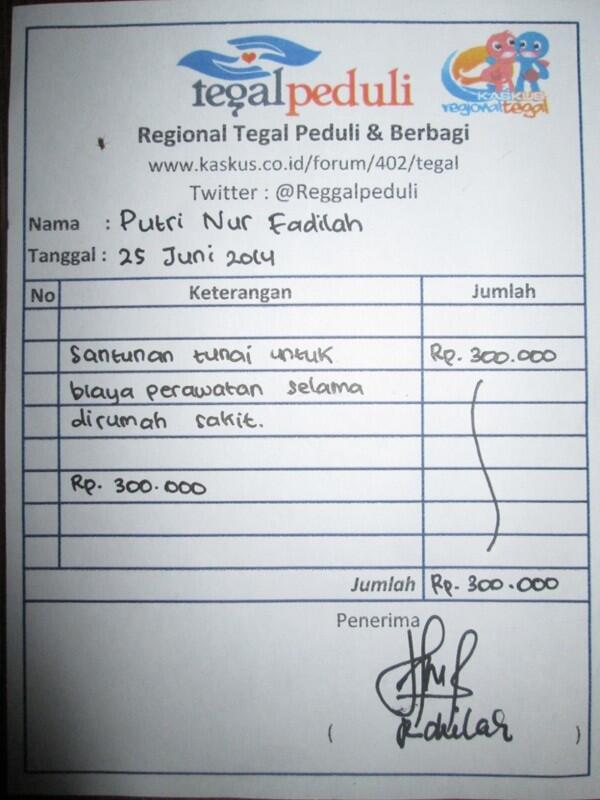 tegalpeduli
KASKUS
regionaltegal
Regional Tegal Peduli & Berbagi
www.kaskus.co.id/forum/402/tegal
Twitter : @Reggalpeduli
Nama : Putri Nur Fadilah
Tanggal : 25 Juni 2014
No Keterangan Jumlah
Santunan tunai untuk Rp. 300.000
biaya perawatan selama
dirumah sakit.
Rp. 300.000
Jumlah Rp. 300.000
Penerima
( )